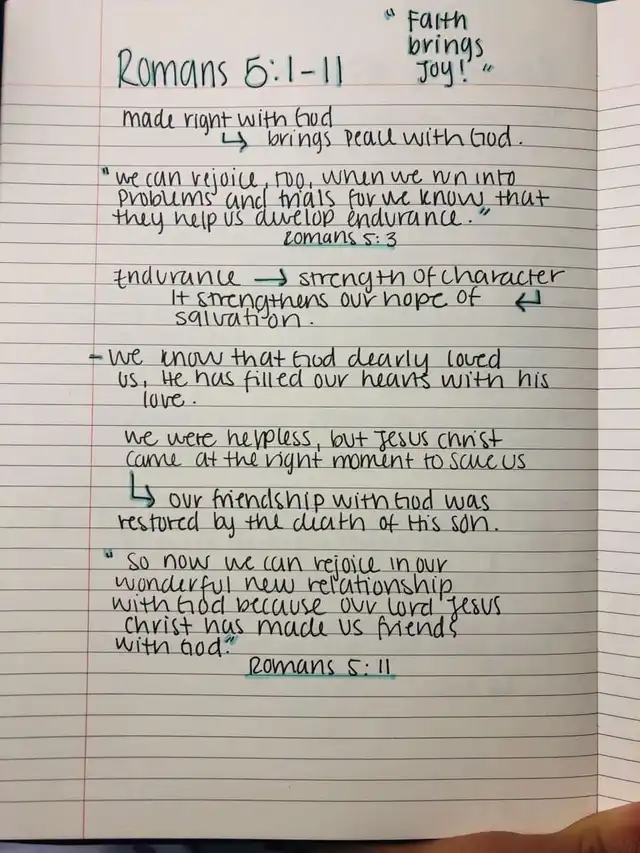 "Faith
brings
Joy!"
Romans 5:1-11
made right with God
↳ brings peace with God.
"we can rejoice, too, when we run into
problems and trials for we know that
they help us develop endurance."
Romans 5:3
Endurance → strength of character
It strengthens our hope of ↵
salvation.
- we know that God dearly loved
us, He has filled our hearts with his
love.
we were helpless, but Jesus Christ
came at the right moment to save us
↳ our friendship with God was
restored by the death of His son.
"So now we can rejoice in our
wonderful new relationship
with God because our lord Jesus
Christ has made us friends
with God."
Romans 5:11